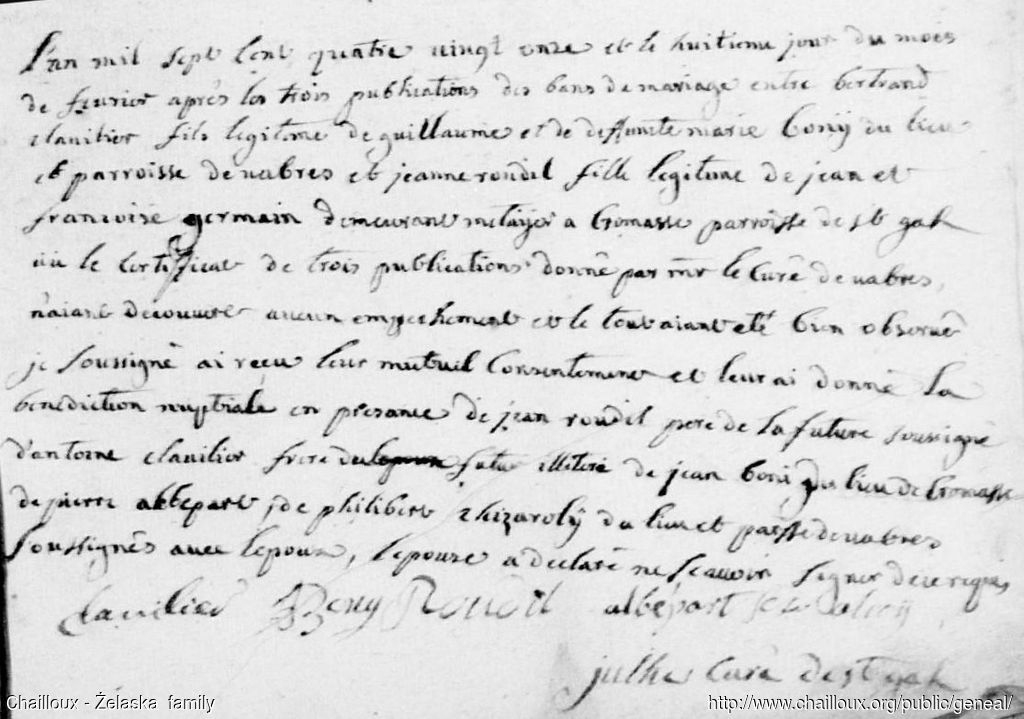 L'an mil sept cent quatre vingt onze et le huitieme jour du mois
de fevrier après les trois publications des bans de mariage entre bertrand
clavilier fils legitime de guillaume et de deffunte marie bony du lieu
et parroisse de vabres et jeanne roudil fille legitime de jean et
francoise germain demeurant metayer a Cromasse parroisse de st gal
vu le certificat de trois publications donné par mr le curé de vabres,
n'aiant decouvert aucun empechement et le tout aiant eté bien observé
je soussigné ai recu leur mutuil consentement et leur ai donné la
benediction nuptiale en presance de jean roudil pere de la future soussigné
d'antoine clavilier frere du futur illiteré de jean boni du lieu de Cromasse
de pierre albepart, de philibert du lieu et parsse de vabres
soussignés avec lepoux, lepouze a declaré ne scavoir signer de ce requis
Clavilier Bony Roudil albepart
julhe curé de st gal
Chailloux - Żelaska family
http://www.chailloux.org/public/geneal/